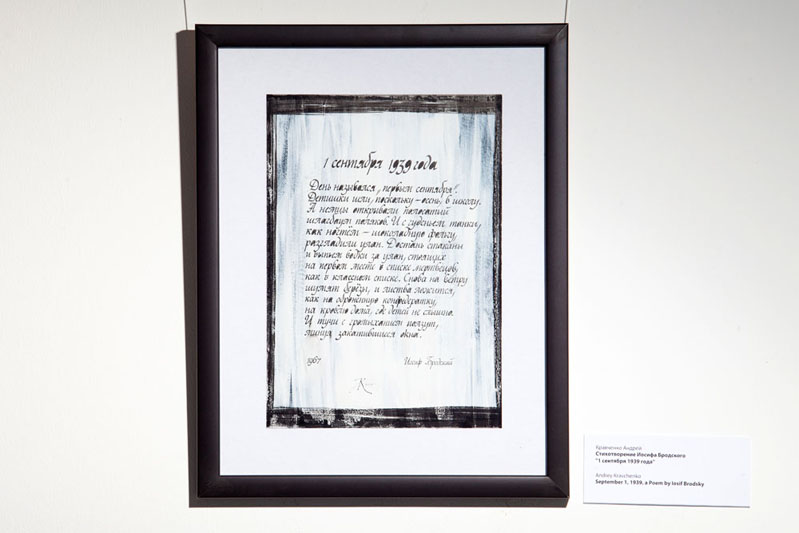 1 сентября 1939 года
День назывался „первым сентября".
Детишки шли, поскольку – осень, в школу.
А немцы открывали полосатый
шлагбаум поляков. И с гуденьем танки,
как ногтем – шоколадную фольгу,
разгладили улан. Достань стаканы
и выпьем водки за улан, стоящих
на первом месте в списке мертвецов,
как в классном списке. Снова на ветру
шумят берёзы, и листва ложится,
как на оброненную конфедератку,
на кровлю дома, где детей не слышно.
И тучи с громыханием ползут,
минуя закатившиеся окна.
1967
Иосиф Бродский
К
Кравченко Андрей
Стихотворение Иосифа Бродского
"1 сентября 1939 года"
Andrey Kravchenko
September 1, 1939, a Poem by Iosif Bradsky